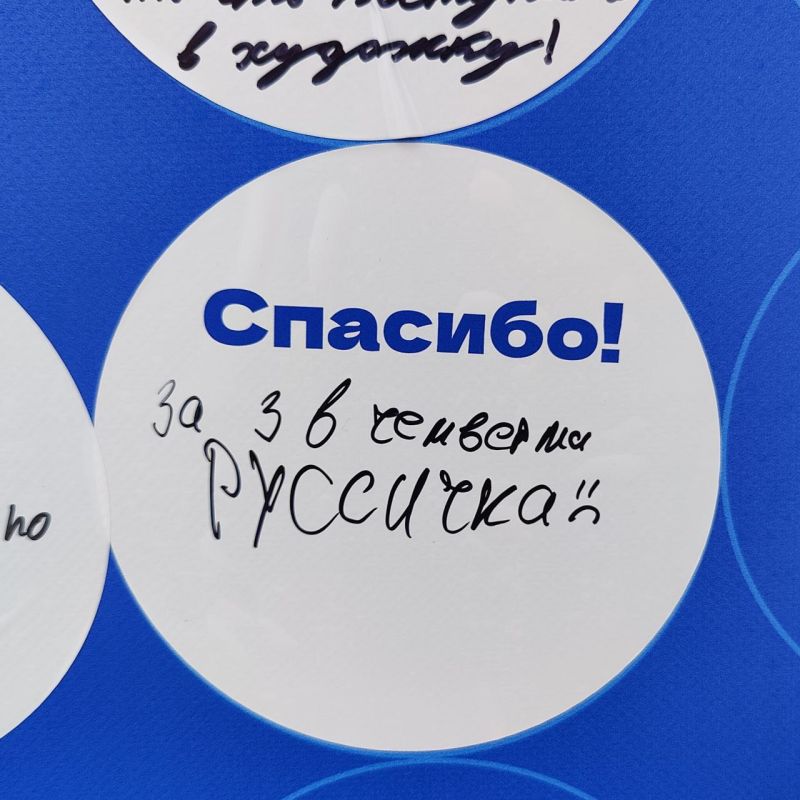 в художку!
Спасибо!
за 3 в четверти
РУССИЧКА
но